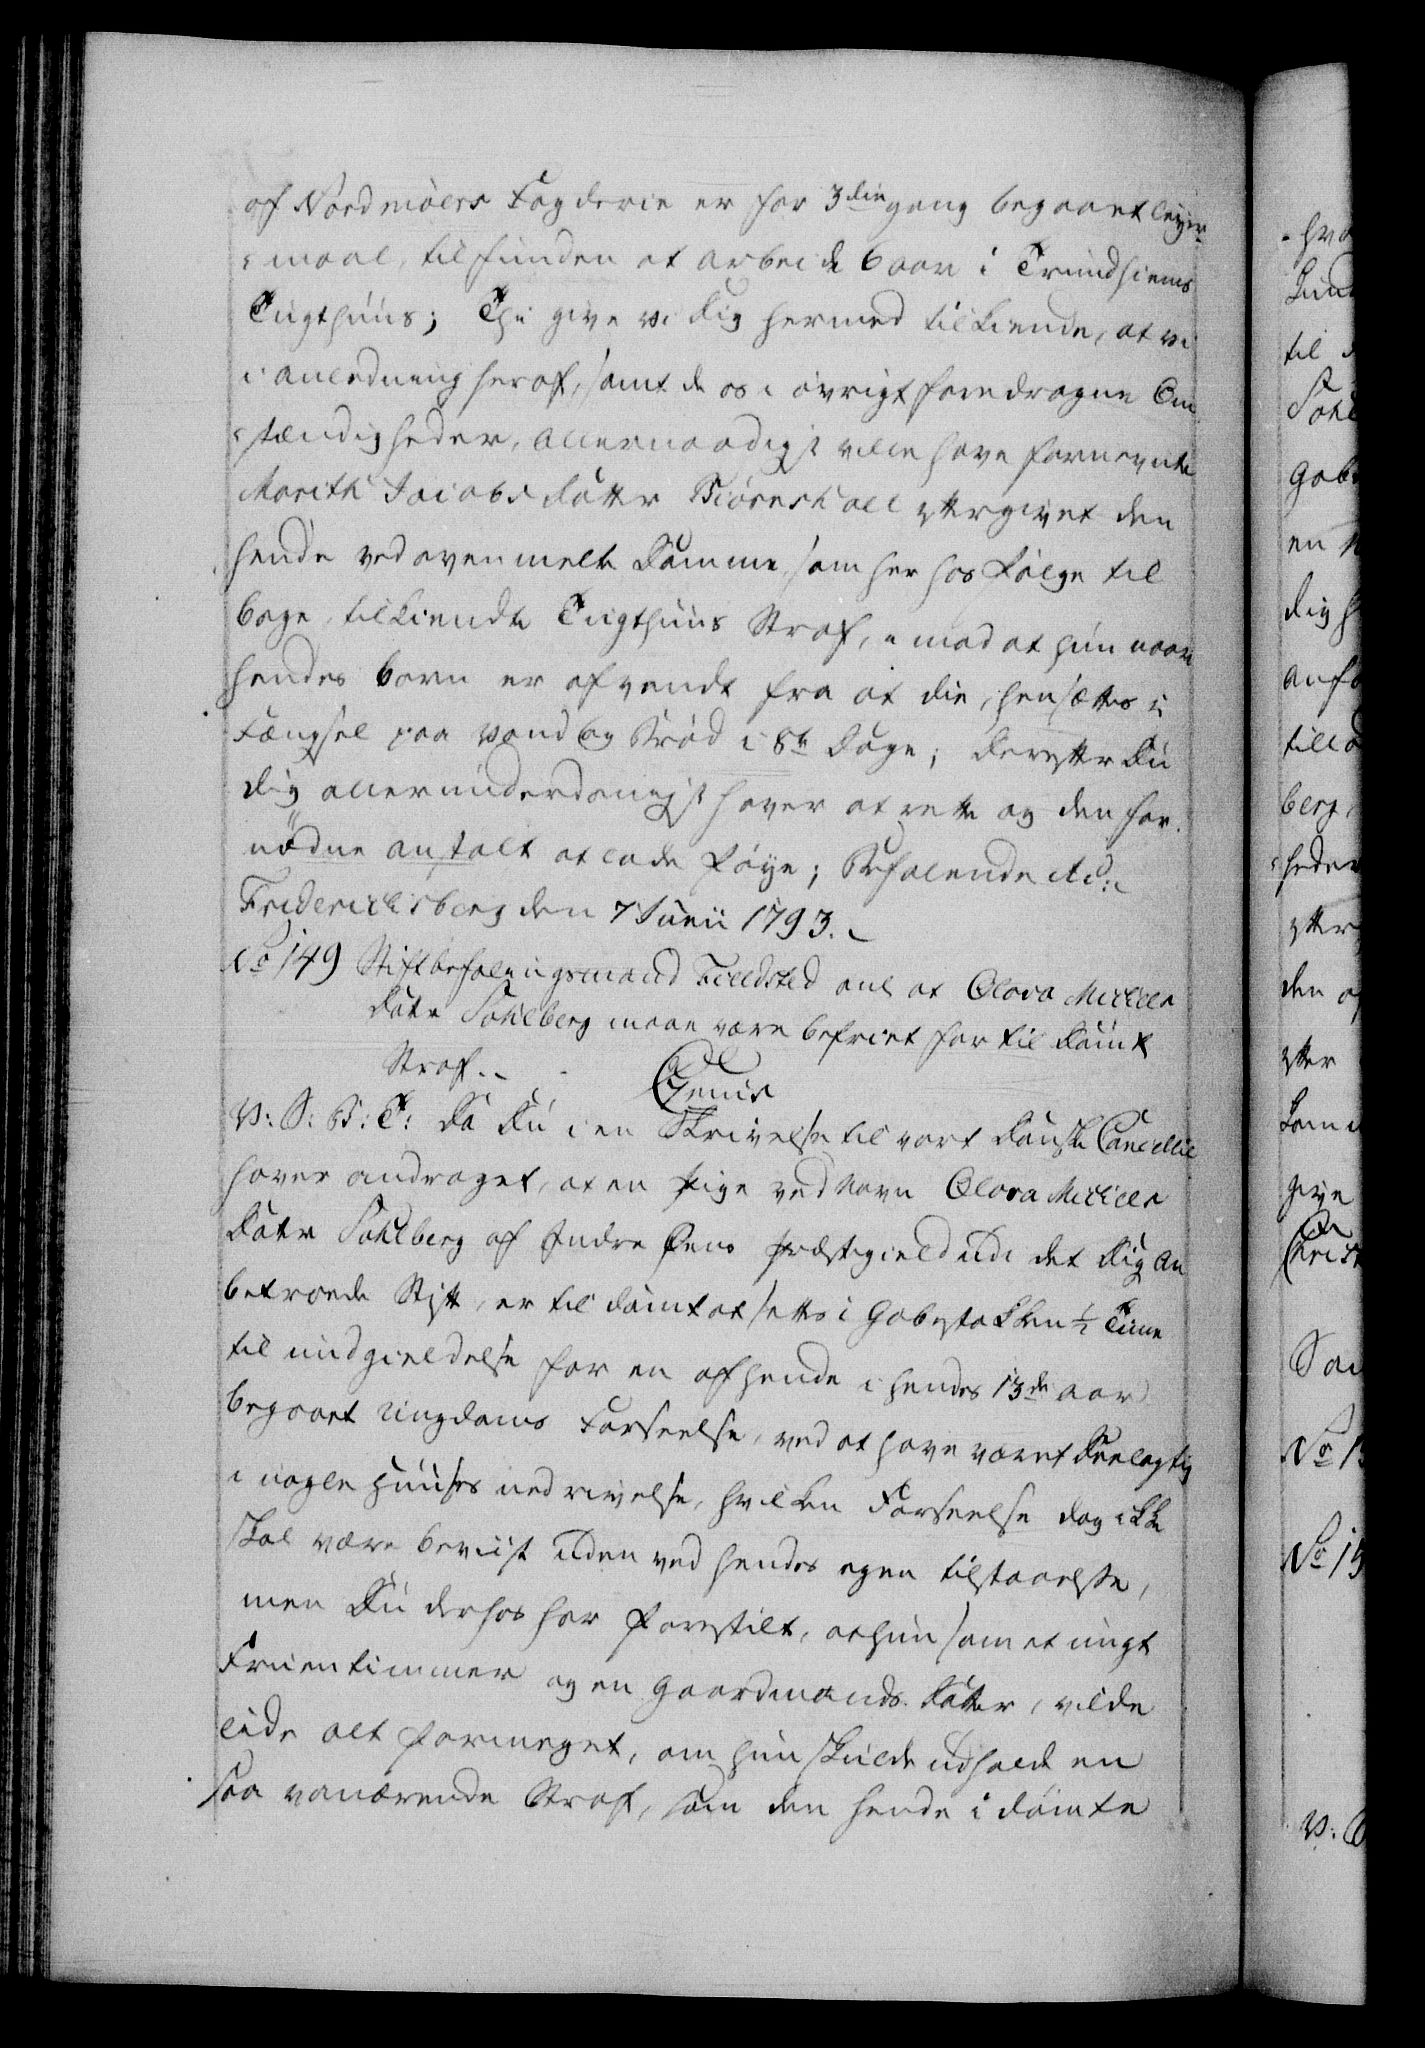 af Nordmøers Fogderie er for 3die gang begaaet leyer-
-maal, tilfunden at arbeide 6 aar i Trundhiems
Tugthuus; Thi give vi dig hermed tilkiende, at vi
i anledning heraf, samt de os i øvrigt foredragne Om-
-stændigheder, allernaadigst ville have fornevnte
Marith Jacobsdatter Biørnskall eftergivet den
hende ved ovenmelte Domme, som herhos følge til-
bage, tilkiendte Tugthuus Straf, imod at hun naar
hendes barn er afvendt fra at die, hensættes i
Fængsel paa Vand og Brød i 8te Dage; derefter Du
dig allerunderdanigst haver at rette og den for-
nødne anstalt at lade føye; Befalende etc:
Friderichsberg den 7 Junii 1793.
No 149 Stiftbefalingsmand Fieldsted anl at Olava
Datr Sohlberg maae være befriet for til dømt
Straf.
V: S: B: T: Da Du i en Skrivelse til vort Danske Cancellie
haver andraget, at en Pige ved Navn Olava
Datr Sohlberg af Indre Præstegield udi det Dig an-
betroede Stift, er til dømt at settes i Gabestokken 1/2 Time
til undgieldelse for en af hende i hendes 13de aar
begaaet Ungdoms Forseelse, ved at have været Deelagtig
i nogle Huuses nedrivelse, hvilken Forseelse dog ikke
skal være beviist uden ved hendes egen tilstaaelse,
men Du derhos har forestilt, at hun som et ungt
Fruentimmer og en Gaardmands Datter, vilde
lide alt formeget, om hun skulde udholde en
saa vanærende Straf, som den hende i dømte